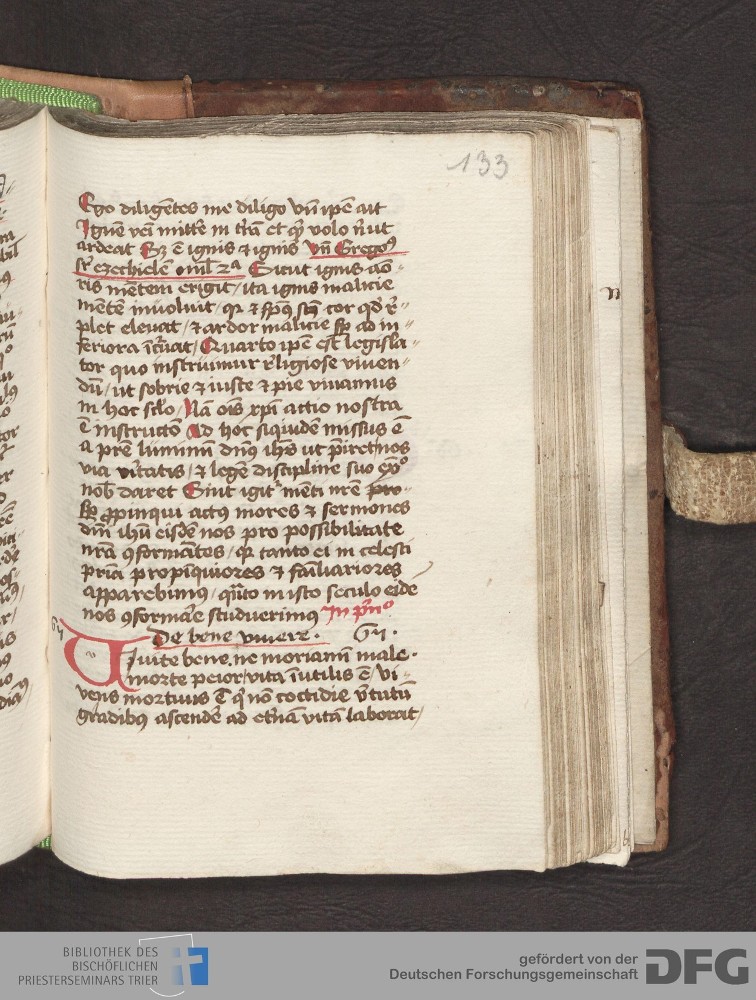 133
Ego diligētes me diligo Vn̄ ip̄e ait
Ignē veī mitte͛ in t͛rā et qͥ volo n͛ ut
ardeat Sꝫ ē ignis ⁊ ignis vn̄ Gregoꝰ
sr̄ ezechielē omͥl 2ª Sicut ignis aō-
ris mētem erigit / ita ignis malicie
mētē inuoluit / qꝛ ⁊ sp̄us sctūs cor qd̓ r͛-
plet eleuat / ⁊ ardor malicie sꝑ ad in-
feriora īc͛uat / Quarto ip̄e est legisla-
tor quo instruimur r͛ligiose viuen-
dū / ut sobrie ⁊ iuste ⁊ pie viuamus
in hoc sclo / Nā oīs xp̄i actio nostra
ē instructō Ad hoc siquidē missus ē
a pr̄e luminū dn̄s ih̄s ut p͛iret nos
via v͛itatis / ⁊ legē discipline suo
nob̄ daret Sint igit͛ mēti nr̄e
sꝑ ꝓpinqui actꝰ mores ⁊ sermones
dn̄i ih̄u eisdē nos pro possibilitate
nr̄a ꝯformātes / qꝛ tanto ei in celesti
pr̄ia propīquiores ⁊ fāiliariores
apparebimꝰ / qūto in isto seculo eidē
nos ꝯforma͛e studuerimꝰ In pn̄º
De bene viuere · 67 ·
67
Viuite bene, ne moriam̄ male ·
morte peior / vita īutilis ē / vi-
vens mortuus ē qͥ nō cottidie v͛tutū
gradibꝰ ascende͛ ad et͛nā vitā laborat /
n
BIBLIOTHEK DES
BISCHÖFLICHEN
PRIESTERSEMINARS TRIER
gefördert von der
Deutschen Forschungsgemeinschaft
DFG